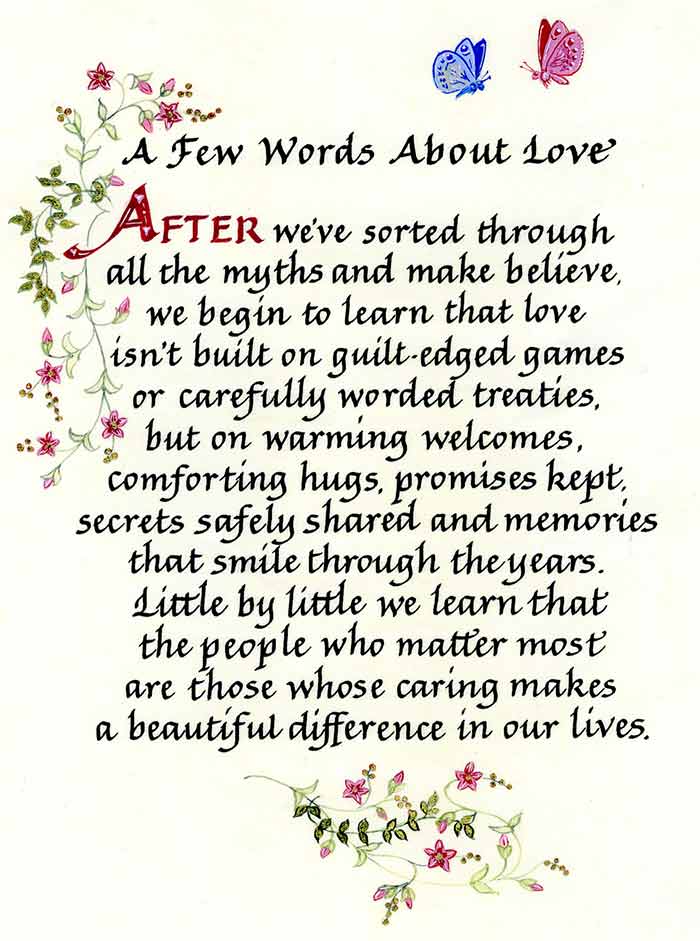 A Few Words About Love
AFTER we've sorted through
all the myths and make believe,
we begin to learn that love
isn't built on guilt-edged games
or carefully worded treaties,
but on warming welcomes,
comforting hugs, promises kept,
secrets safely shared and memories
that smile through the years.
Little by little we learn that
the people who matter most
are those whose caring makes
a beautiful difference in our lives.